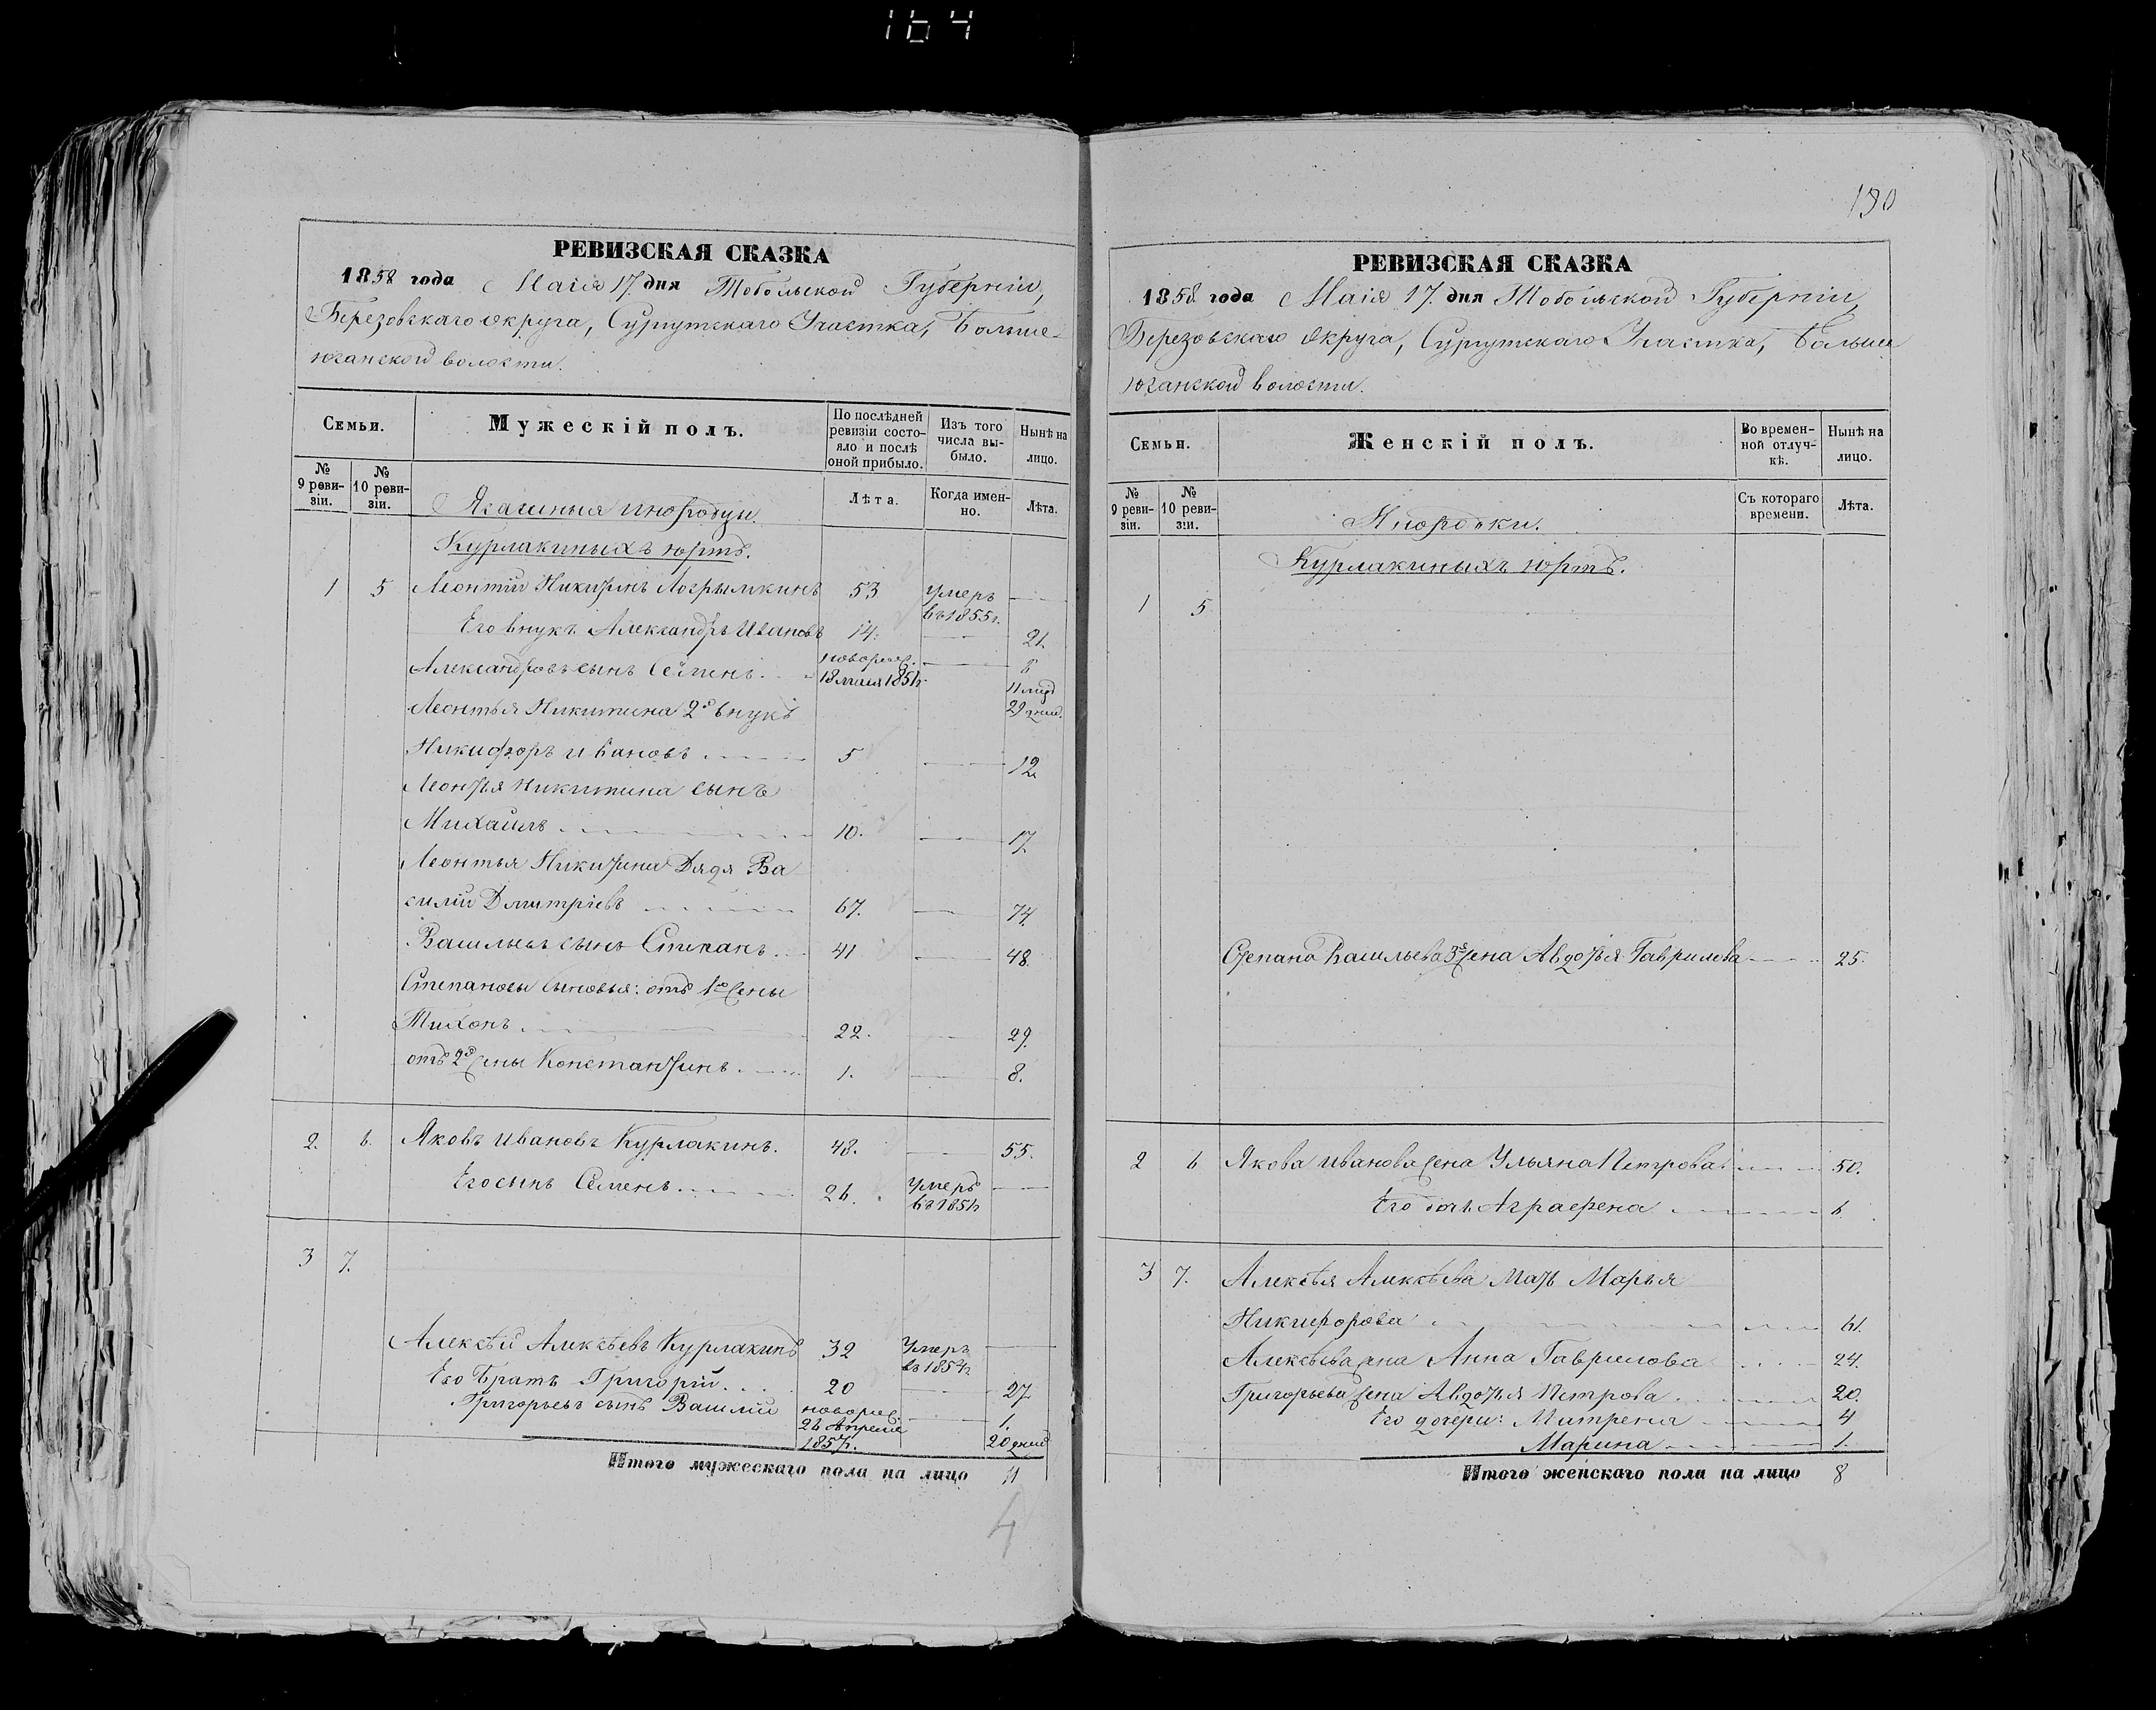 164
РЕВИЗСКАЯ СКАЗКА
1858 года Маія 17. дня Тобольской Губерніи,
Березовскаго округа, Сургутскаго Участка, Больше-
юганской волости.
Семьи.
Мужескій полъ.
По послѣдней ревизіи состо-яло и послѣ оной прибыло.
Изъ того числа вы-было.
Нынѣ на лицо.
№ 9 реви-зіи.
№ 10 реви-зіи.
Лѣта.
Когда имен-но.
Лѣта.
Ясашныя инородцы.
Курлакиныхъ юртъ.
1 5 Леонтій Никитинъ 53 Умеръ въ 1855 г.
Его внукъ Александръ Ивановъ 14. 21.
Александровъ сынъ Семенъ новорож. 18 1851 г. 11 мцъ 29 дней.
Леонтья Никитина 2й внукъ
Никифоръ Ивановъ 5 12
Леонтья Никитина сынъ
Михайлъ 10. 17
Леонтья Никитина Дядя Ва
силій Дмитріевъ 67. 74.
Васильевъ сынъ Степанъ 41 48.
Степановы сыновья: отъ 1й жены
Тихонъ 22. 29.
отъ 2й жены Константинъ 1. 8.
2. 6. Яковъ Ивановъ Курлакинъ. 48. 55.
Его сынъ Семенъ 26. Умеръ
3 7.
Алексѣй Алексѣевъ Курлакинъ 32 Умеръ
Его Братъ Григорій 20 27
Григорьевъ сынъ Василій новорож. 26 Апреля 1857 г. 1. 20 дней
Итого мужескаго пола на лицо 11
4
190
РЕВИЗСКАЯ СКАЗКА
1858 года Маія 17. дня Тобольской Губерніи,
Березовскаго округа, Сургутскаго Участка, Больше
юганской волости.
Семьи.
Женскій полъ.
Во времен-ной отлуч-кѣ.
Нынѣ на лицо.
№ 9 реви-зіи.
№ 10 реви-зіи.
Съ котораго времени.
Лѣта.
Курлакиныхъ юртъ.
1 5
Степана Васильева 3я жена Авдотья Гаврилова 25.
2 6 Якова Иванова жена Ульяна Петрова 50.
Его дочь Аграфена 6
3 7. Алексѣя Алексѣева мать Марья
Никифорова 61.
Алексѣева жена Анна Гаврилова 24.
Григорьева жена Авдотья Петрова 20.
Его дочери: Матрена 4
Марина 1.
Итого женскаго пола на лицо 8